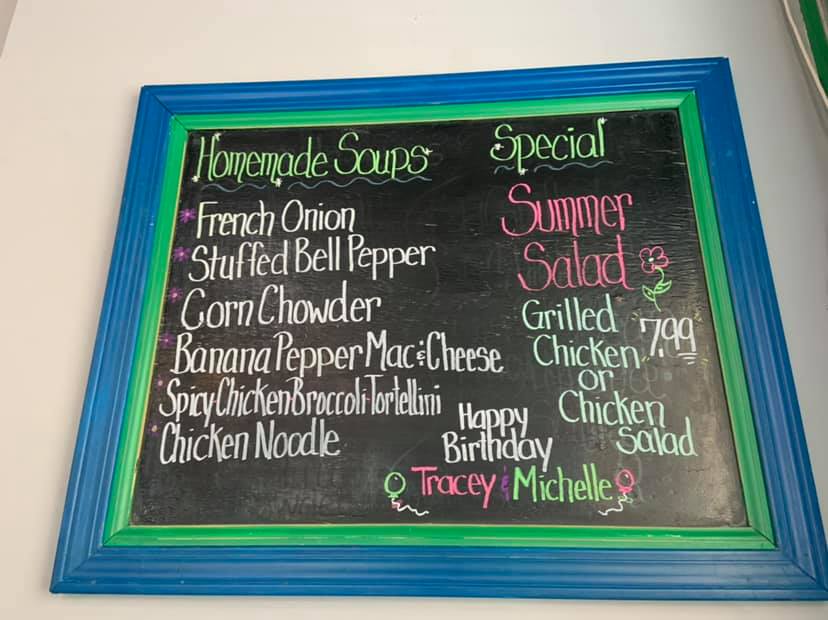 Homemade Soups
French Onion
Stuffed Bell Pepper
Corn Chowder
Banana Pepper Mac & Cheese
Spicy Chicken Broccoli Tortellini
Chicken Noodle
Special
Summer
Salad
Grilled
Chicken
or
Chicken
Salad
7.99
Happy
Birthday
Tracey & Michelle